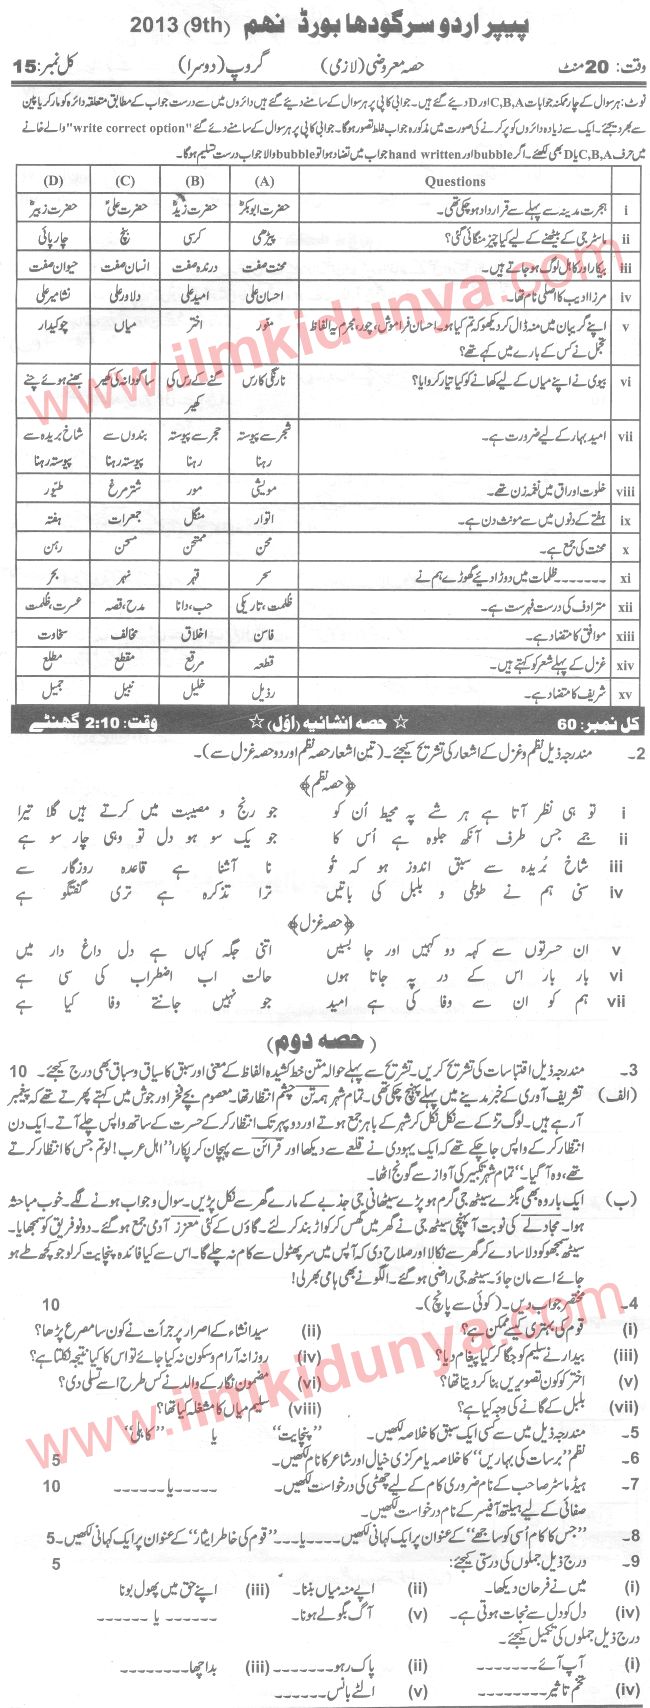 پیپر اردو سرگودھا بورڈ نہم (9th) 2013
وقت: 20 منٹ حصہ معروضی (لازمی) گروپ (دوسرا) کل نمبر: 15
نوٹ: ہر سوال کے چار ممکنہ جوابات C,B,A اور D دیئے گئے ہیں۔ جوابی کاپی پر ہر سوال کے سامنے دیئے گئے دائروں میں سے درست جواب کے مطابق متعلقہ دائرہ کو مارکر یا پین
سے بھر دیجئے۔ ایک سے زیادہ دائروں کو پر کرنے کی صورت میں مذکورہ جواب غلط تصور ہوگا۔ جوابی کاپی پر ہر سوال کے سامنے دیئے گئے "write correct option" والے خانے
میں حرف C,B,A یا D بھی لکھئے۔ اگر bubble اور hand written جواب میں تضاد ہوا تو bubble والا جواب درست تسلیم ہوگا۔
Questions (A) (B) (C) (D)
i ہجرت مدینہ سے پہلے سے قرارداد ہو چکی تھی۔ حضرت ابوبکرؓ حضرت زیدؓ حضرت علیؓ حضرت زبیرؓ
ii ماسٹر جی کے بیٹھنے کے لیے کیا چیز منگائی گئی؟ پیڑھی کرسی بنچ چارپائی
iii بیکار اور کاہل لوگ ہو جاتے ہیں۔ محنت صفت درندہ صفت انسان صفت حیوان صفت
iv مرزا ادیب کا اصلی نام تھا۔ احسان علی امید علی دلاور علی نثار میر علی
v اپنے گریبان میں منہ ڈال کر دیکھو کہ تم کیا ہو۔ احسان فراموش، چور، مجرم یہ الفاظ
تجمل نے کس کے بارے میں کہے تھے؟ غفور اختر میاں چوکیدار
vi بیوی نے اپنے میاں کے لیے کھانے کو کیا تیار کروایا؟ نارنگی کا رس گنے کے رس کی کھیر ساگودانہ کی کھیر بھنے ہوئے چنے
vii امید بہار کے لیے ضرورت ہے۔ شجر سے پیوستہ رہنا حجر سے پیوستہ رہنا بندوں سے پیوستہ رہنا شاخ بریدہ سے پیوستہ رہنا
viii خلوت اوراق میں نغمہ زن تھے۔ مویشی مور شتر مرغ طیور
ix ہفتے کے دنوں میں سے مونث دن ہے۔ اتوار منگل جمعرات ہفتہ
x محنت کی جمع ہے۔ محن ممتحن مسحن رہن
xi ۔۔۔۔۔۔۔ ظلمات میں دوڑا دیئے گھوڑے ہم نے سحر قہر نہر بحر
xii مترادف کی درست فہرست ہے۔ ظلمت، تاریکی حب، دانا مدح، قصہ عسرت، ظلمت
xiii موافق کا متضاد ہے۔ فاسن اخلاق مخالف سخاوت
xiv غزل کے پہلے شعر کو کہتے ہیں۔ قطعہ مرقع مقطع مطلع
xv شریف کا متضاد ہے۔ رذیل خلیل نبیل جمیل
کل نمبر: 60 ☆ حصہ انشائیہ (اول) ☆ وقت: 2:10 گھنٹے
2۔ مندرجہ ذیل نظم و غزل کے اشعار کی تشریح کیجئے۔ (تین اشعار حصہ نظم اور دو حصہ غزل سے)۔
﴿حصہ نظم﴾
i تو ہی نظر آتا ہے ہر شے پہ محیط اُن کو جو رنج و مصیبت میں کرتے ہیں گلا تیرا
ii جمے جس طرف آنکھ جلوہ ہے اُس کا جو یک سو ہو دل تو وہی چار سو ہے
iii شاخ بُریدہ سے سبق اندوز ہو کہ تُو نا آشنا ہے قاعدہ روزگار سے
iv سنی ہم نے طوطی و بلبل کی باتیں ترا تذکرہ ہے تری گفتگو ہے
﴿حصہ غزل﴾
v ان حسرتوں سے کہہ دو کہیں اور جا بسیں اتنی جگہ کہاں ہے دل داغ دار میں
vi بار بار اس کے در پہ جاتا ہوں حالت اب اضطراب کی سی ہے
vii ہم کو ان سے وفا کی ہے امید جو نہیں جانتے وفا کیا ہے
(حصہ دوم)
3۔ مندرجہ ذیل اقتباسات کی تشریح کریں۔ تشریح سے پہلے حوالہ متن خط کشیدہ الفاظ کے معنی اور سبق کا سیاق و سباق بھی درج کیجئے۔ 10
(الف) تشریف آوری کے خبر مدینے میں پہلے پہنچ چکی تھی۔ تمام شہر ہمہ تن چشم انتظار تھا۔ معصوم بچے فخر اور جوش میں کہتے پھرتے تھے کہ پیغمبر
آ رہے ہیں۔ لوگ تڑکے سے نکل نکل کر شہر کے باہر جمع ہوتے اور دوپہر تک انتظار کر کے حسرت کے ساتھ واپس چلے آتے۔ ایک دن
انتظار کر کے واپس جا چکے تھے کہ ایک یہودی نے قلعے سے دیکھا اور قرائن سے پہچان کر پکارا "اہل عرب! لو تم جس کا انتظار کرتے
تھے، وہ آ گیا۔" تمام شہر تکبیر کی آواز سے گونج اٹھا۔
(ب) ایک بار وہ بھی بگڑے سیٹھ جی گرم ہو پڑے سیٹھانی جی جذبے کے مارے گھر سے نکل پڑیں۔ سوال و جواب ہونے لگے۔ خوب مباحثہ
ہوا۔ مجادلے کی نوبت آ پہنچی سیٹھ جی نے گھر میں گھس کر کواڑ بند کر لئے۔ گاؤں کے کئی معزز آدمی جمع ہو گئے۔ دونو فریق کو سمجھایا۔
سیٹھ سمجھو کو دلاسا دے کر گھر سے نکالا اور صلاح دی کہ آپس میں سر پھٹول سے کام نہ چلے گا۔ اس سے کیا فائدہ پنچایت کر لو جو کچھ طے ہو
جائے اسے مان جاؤ۔ سیٹھ جی راضی ہو گئے۔ الگو نے بھی ہامی بھر لی!
4۔ مختصر جواب دیں۔ (کوئی سے پانچ)۔ 10
(i) قوم کی بہتری کیسے ممکن ہے؟ (ii) سید انشاء کے اصرار پر جرأت نے کون سا مصرع پڑھا؟
(iii) بیدار نے سلیم کو جگا کر کیا پیغام دیا؟ (iv) روزانہ آرام و سکون نہ کیا جائے تو اس کا کیا نتیجہ نکلتا ہے؟
(v) اختر کو کون تصویریں بنا کر دیتا تھا؟ (vi) مضمون نگار کے والد نے کس طرح اسے تسلی دی؟
(vii) بلبل کے گانے کی وجہ کیا ہے؟ (viii) سلیم میاں کا مشغلہ کیا تھا؟
5۔ مندرجہ ذیل میں سے کسی ایک سبق کا خلاصہ لکھیں۔ "پنچایت" یا "کاہلی"
6۔ نظم "برسات کی بہاریں" کا خلاصہ یا مرکزی خیال اور شاعر کا نام لکھیں۔ 5
7۔ ہیڈ ماسٹر صاحب کے نام ضروری کام کے لیے چھٹی کی درخواست لکھیں۔ ۔۔۔۔۔۔ یا ۔۔۔۔۔۔ 10
صفائی کے لیے ہیلتھ آفیسر کے نام درخواست لکھیں۔
8۔ "جس کا کام اُسی کو ساجھے" کے عنوان پر ایک کہانی لکھیں ۔۔۔۔۔ یا ۔۔۔ "قوم کی خاطر ایثار" کے عنوان پر ایک کہانی لکھیں۔ 5
9۔ درج ذیل جملوں کی درستی کیجئے: 5
(i) میں نے فرحان دیکھا۔ (ii) اپے منہ میاں بننا۔ (iii) اپنے حق میں پھول بونا
(iv) دل کو دل سے نجات ہوتی ہے۔ (v) آگ بگولے ہونا۔ ۔۔۔۔۔۔ یا ۔۔۔۔۔۔
درج ذیل جملوں کی تکمیل کیجئے۔
(i) آپ آئے ۔۔۔۔۔۔۔۔ (ii) پاک رہو ۔۔۔۔۔۔۔ (iii) بد اچھا ۔۔۔۔۔۔۔
(iv) تخم تاثیر ۔۔۔۔۔۔۔ (v) الٹے بانس ۔۔۔۔۔۔۔
www.ilmkidunya.com
www.ilmkidunya.com